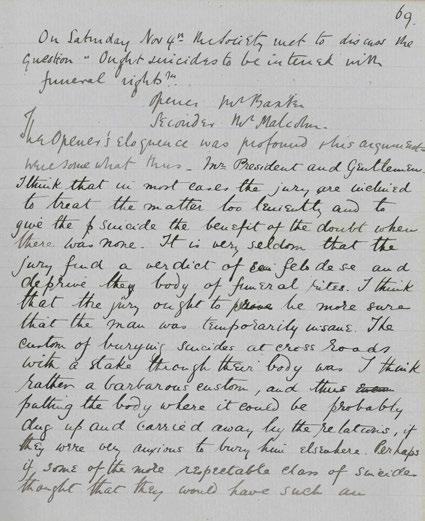 69.
On Saturday Nov 4th the Society met to discuss the
Question "Ought suicides to be interred with
funeral rights?"
Opener Mr Baxter
Seconder Mr Malcolm.
The Opener's eloquence was profound & his arguments
were somewhat thus - Mr President and Gentlemen.
I think that in most cases the jury are inclined
to treat the matter too leniently and to
give the suicide the benefit of the doubt when
there was none. It is very seldom that the
jury find a verdict of felo de se and
deprive the body of funeral rites. I think
that the jury ought to be more sure
that the man was temporarily insane. The
custom of burying suicides at cross roads
with a stake through their body was I think
rather a barbarous custom, and thus
putting the body where it could be probably
dug up and carried away by the relations, if
they were very anxious to bury him elsewhere. Perhaps
if some of the more respectable class of suicides
thought that they would have such an